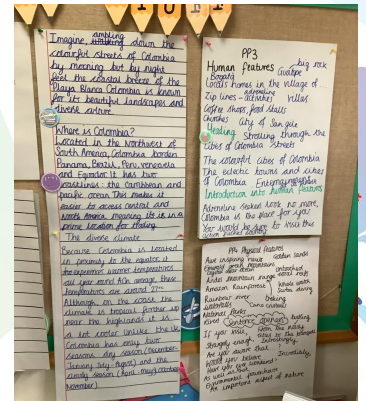 Imagine, ambling down the
colourful streets of Colombia
by meaning but by night
feel the coastal breeze of the
Playa Blanca Colombia is known
for its beautiful landscapes and
diverse culture.
Where is Colombia?
Located in the Northwest of
South America, Colombia borders
Panama, Brazil, Peru, Venezuela
and Equador it has two
coastlines: the Caribbean and
Pacific ocean This makes it
easier to access central and
North America meaning its is in a
prime location for trading
The diverse climate
Because Colombia is located
in proximity to the equator it
temperatures are around 27
Although, on the coast the
climate is tropical further up
near the highlands it is
a lot cooler Unlike the UK
Colombia has only two
seasons: dry season (December-
January July-August) and the
November)
PP3
Human features
big rock
Bogata
Locals homes in the village of
Zip lines - activities
villas
Coffee shops, food stalls
Churches
City of San
Heading
Strolling through the
cities of Colombia streets
The colourful cities of Colombia
The eclectic towns and cities
of Colombia
Introduction into human features
Adrenaline seekers look no more,
Colombia is the place for you
You would be sure to visit this
action packed country
PP4 Physical features
Awe inspiring views
Golden sands
Andes mountain range
Untouched
coral reefs
Amazon Rainforest
Whale watch
Rainbow river
trekking
waterfalls
National Parks
Sentence openers
If you wish,
Strangely enough,
Interestingly
Are you aware that
?
Would you believe
Incredibly
Have you ever wondered?
As well as that
An important aspect of nature